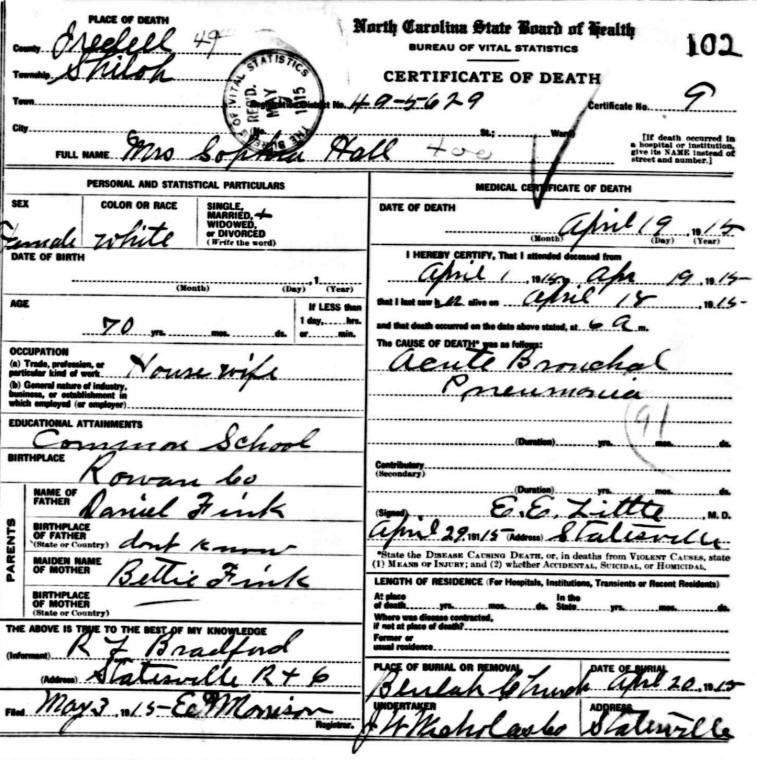 PLACE OF DEATH
North Carolina State Board of Health
BUREAU OF VITAL STATISTICS
102
County Iredell 49
CERTIFICATE OF DEATH
Township Shiloh
THE BUREAU OF VITAL STATISTICS
REC'D.
MAY
1915
Town
Registration District No. 49-5629
Certificate No. 9
City
No.
St.;
Ward)
[If death occurred in
a hospital or institution,
give its NAME instead of
street and number.]
FULL NAME Mrs Sophia Hall 400
PERSONAL AND STATISTICAL PARTICULARS
SEX
Female
COLOR OR RACE
White
SINGLE,
MARRIED,
WIDOWED,
OR DIVORCED
(Write the word)
DATE OF BIRTH
, 1
(Month) (Day) (Year)
AGE
70 yrs. mos. ds.
If LESS than
1 day, hrs.
or min.
OCCUPATION
(a) Trade, profession, or
particular kind of work House wife
(b) General nature of industry,
business, or establishment in
which employed (or employer)
EDUCATIONAL ATTAINMENTS
Common School
BIRTHPLACE
Rowan Co
PARENTS
NAME OF
FATHER
Daniel Fink
BIRTHPLACE
OF FATHER
(State or Country) dont know
MAIDEN NAME
OF MOTHER
Bettie Fink
BIRTHPLACE
OF MOTHER
(State or Country) —
THE ABOVE IS TRUE TO THE BEST OF MY KNOWLEDGE
(Informant) R F Bradford
(Address) Statesville R + 6
Filed May 3, 1915- Morrison
Registrar.
MEDICAL CERTIFICATE OF DEATH
DATE OF DEATH
April 19, 1915
(Month) (Day) (Year)
I HEREBY CERTIFY, That I attended deceased from
April 1, 1915, Apr 19, 1915-
that I last saw her alive on April 18, 1915-
and that death occurred on the date above stated, at 6 a m.
The CAUSE OF DEATH* was as follows:
Acute Bronchal
Pneumonia
91
(Duration) yrs. mos. ds.
Contributory
(Secondary)
(Duration) yrs. mos. ds.
(Signed) E. E. Little, M. D.
April 29, 1915 (Address) Statesville
*State the DISEASE CAUSING DEATH, or, in deaths from VIOLENT CAUSES, state
(1) MEANS OF INJURY; and (2) whether ACCIDENTAL, SUICIDAL, OR HOMICIDAL.
LENGTH OF RESIDENCE (For Hospitals, Institutions, Transients or Recent Residents)
At place
of death yrs. mos. ds.
In the
State yrs. mos. ds.
Where was disease contracted,
if not at place of death?
Former or
usual residence
PLACE OF BURIAL OR REMOVAL
Beulah Church
DATE OF BURIAL
April 20, 1915
UNDERTAKER
J W Nicholas Co
ADDRESS
Statesville